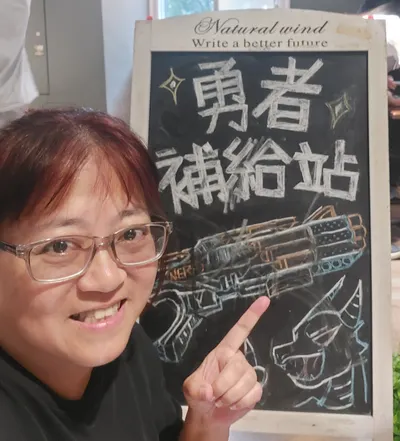 Natural wind
Write a better future
勇者
補給站
NERF